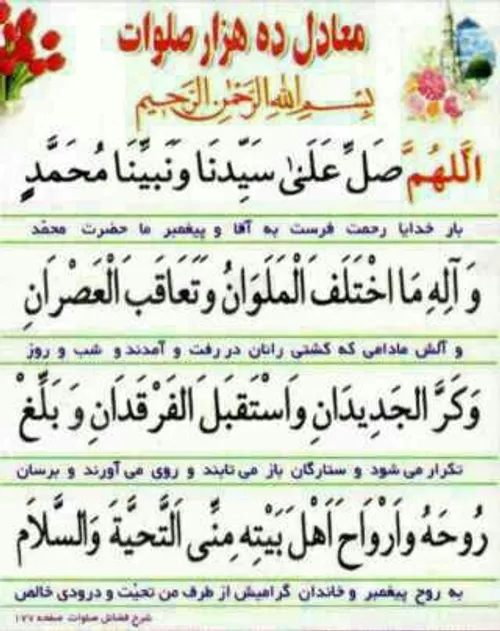 معادل ده هزار صلوات
بِسْمِ اللهِ الرَّحْمٰنِ الرَّحيمِ
اَللّهُمَّ صَلِّ عَلَىٰ سَيِّدِنَا وَنَبِيِّنَا مُحَمَّدٍ
بار خدایا رحمت فرست به آقا و پیغمبر ما حضرت محمّد
وَ آلِهِ مَا اخْتَلَفَ الْمَلَوَانُ وَ تَعَاقَبَ الْعَصْرَانِ
و آلش مادامی که کشتی رانان در رفت و آمدند و شب و روز
وَكَرَّ الجَدِيدَانِ وَاسْتَقبَلَ الفَرْقَدَانِ وَ بَلِّغْ
تکرار می شود و ستارگان باز می تابند و روی می آورند و برسان
رُوحَهُ وَاَرْوَاحَ اَهْلَ بَيْتِهِ مِنِّى اَلتَّحيَّةَ وَالسَّلاَم
به روح پیغمبر و خاندان گرامیش از طرف من تحیّت و درودی خالص
شرح فضائل صلوات صفحه ۱۷۷